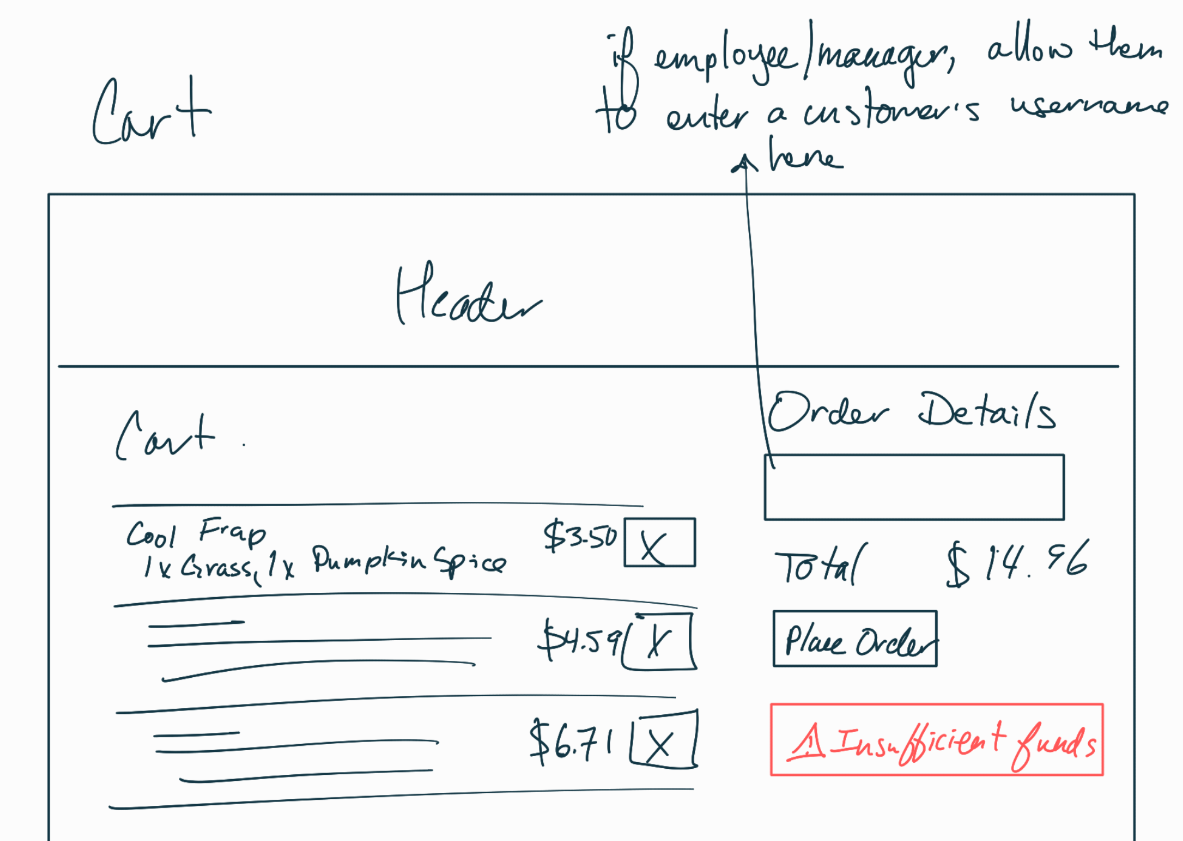 Cart
if employee/manager, allow them
to enter a customer's username
here
Header
Cart
Cool Frap
1x Grass, 1x Pumpkin Spice
$3.50 X
$4.59 X
$6.71 X
Order Details
Total $14.96
Place Order
⚠ Insufficient funds